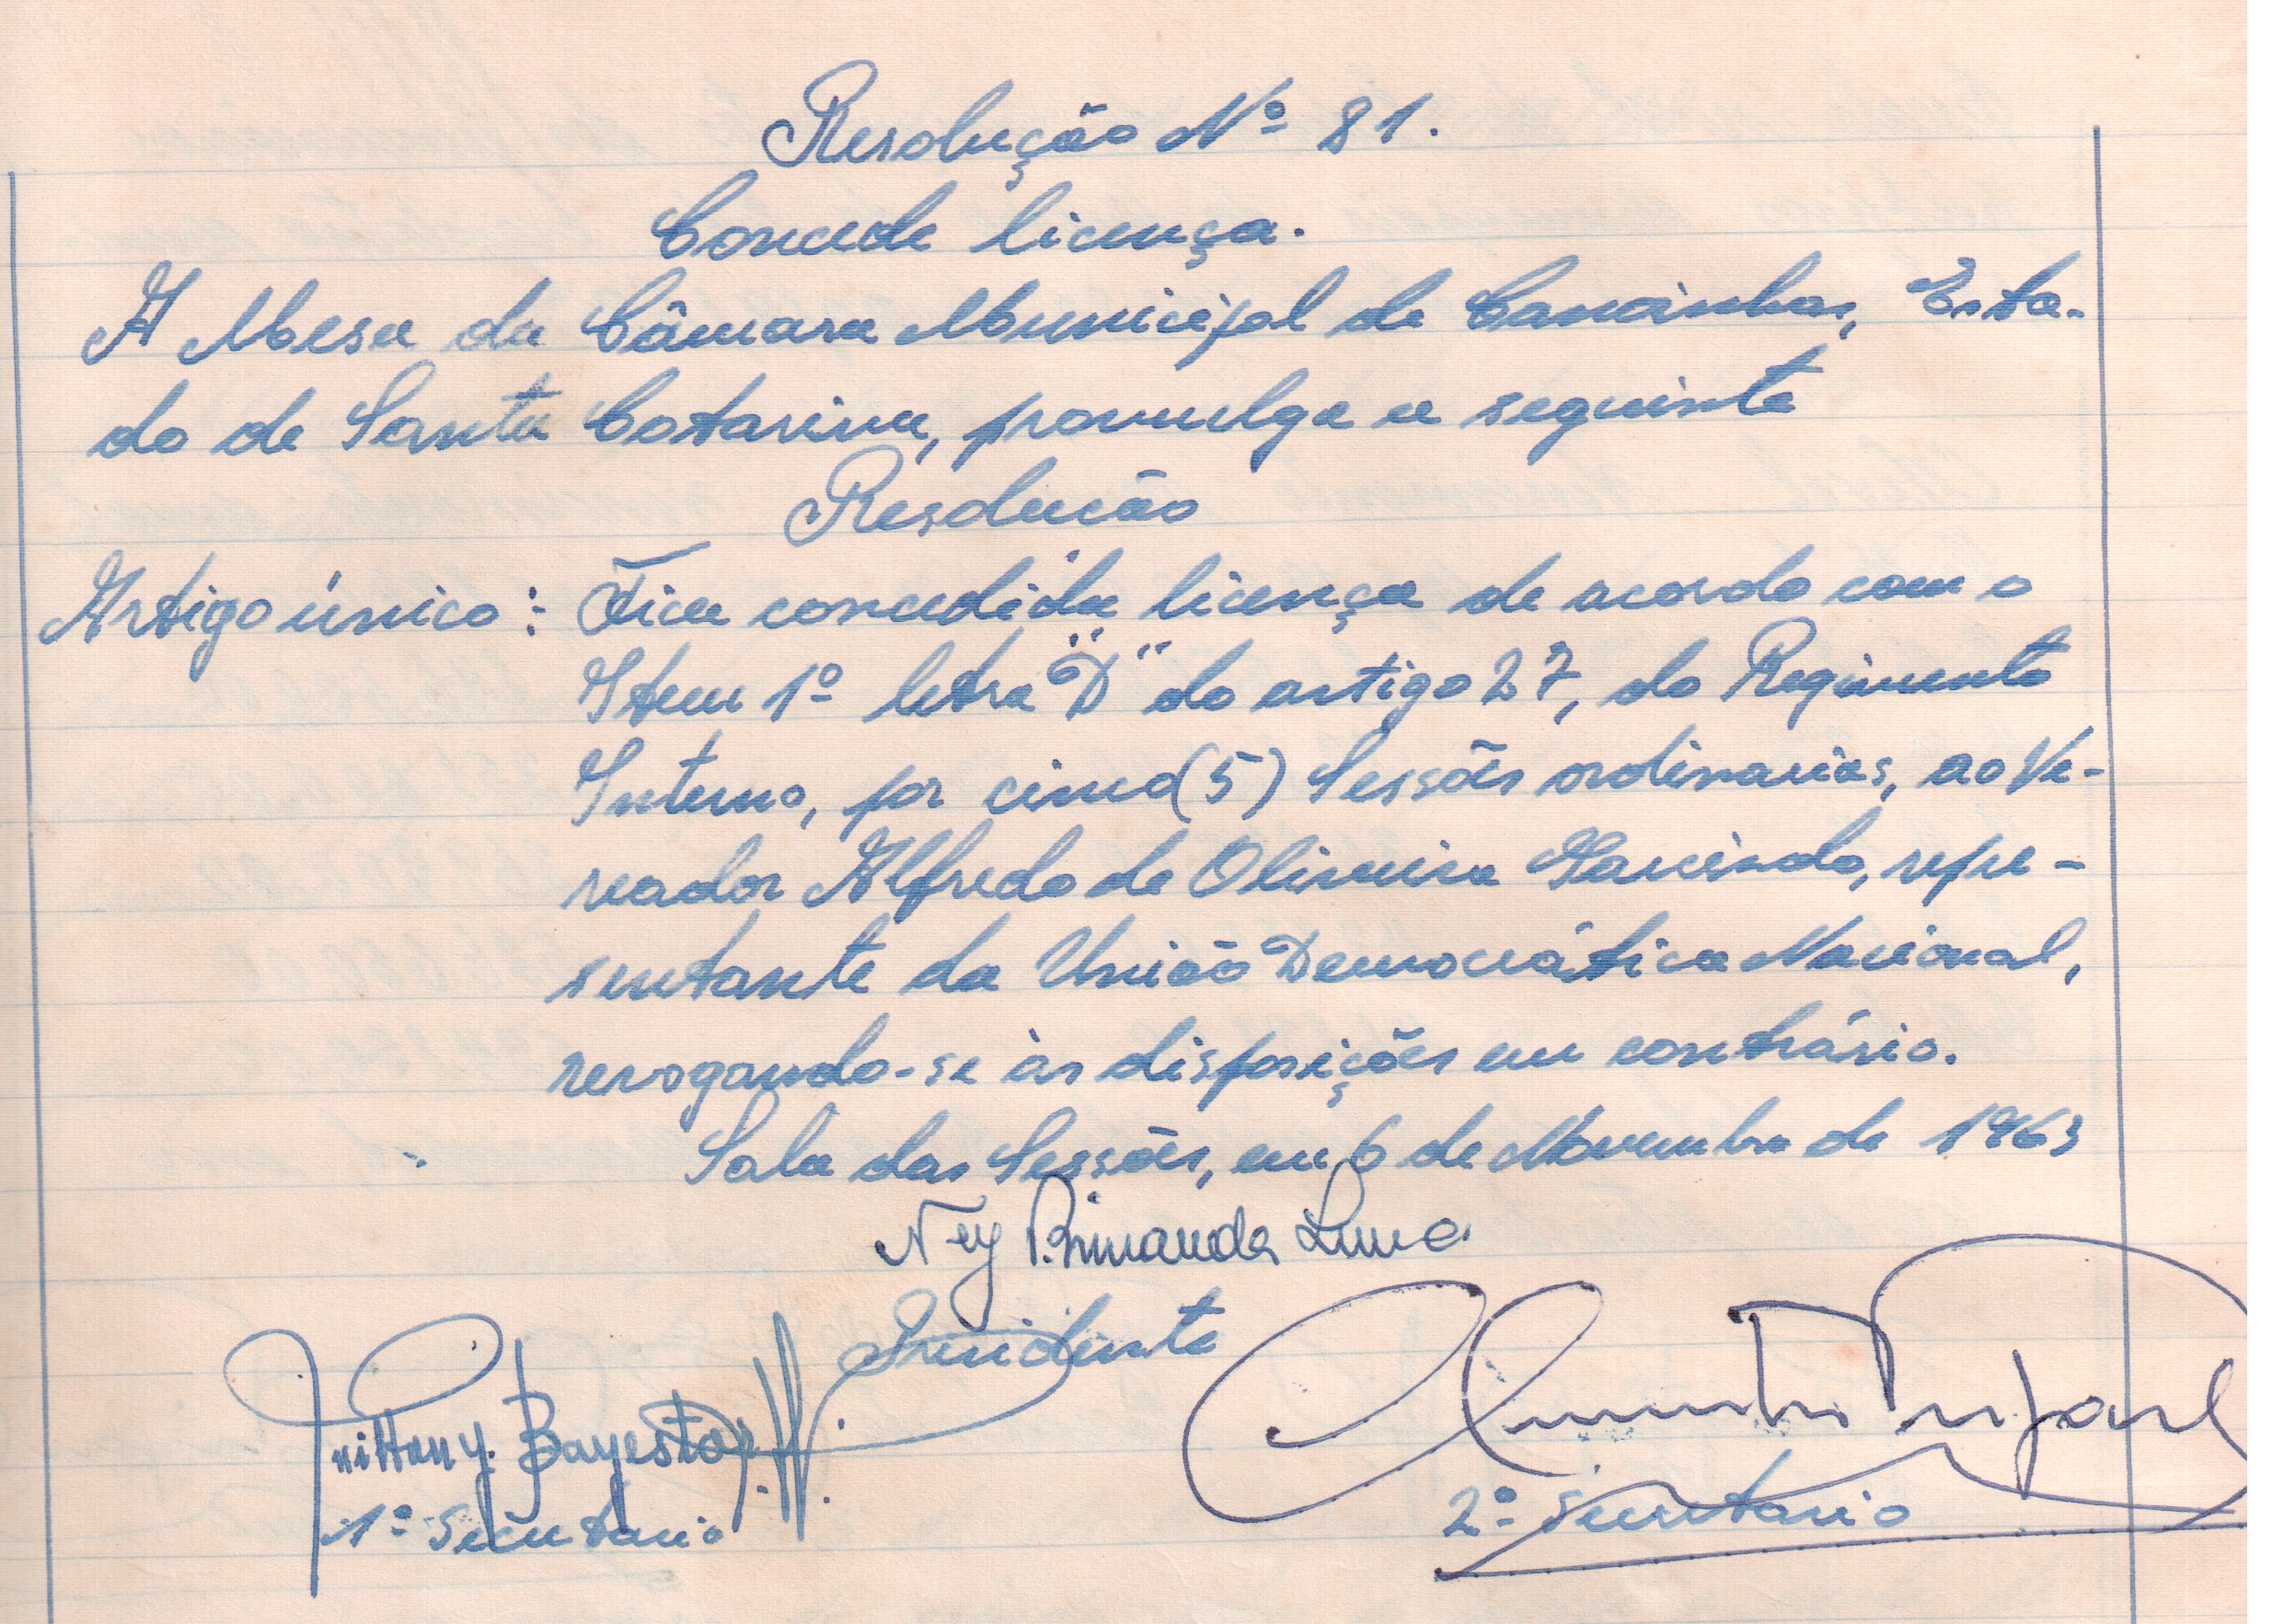 Resolução Nº 81.
Concede licença.
A Mesa da Câmara Municipal de Canoinhas, Esta-
do de Santa Catarina, promulga a seguinte
Resolucão
Artigo único: Fica concedida licença de acordo com o
Item 1º letra "D" do artigo 27, do Regimento
Interno, por cinco (5) Sessões ordinarias, ao Ve-
reador Alfredo de Oliveira Garcindo, repre-
sentante da União Democrática Nacional,
revogando-se às disposições em contrário.
Sala das Sessões, em 6 de Novembro de 1963
Ney Lima
Presidente
1º Secretario
2º Secretario